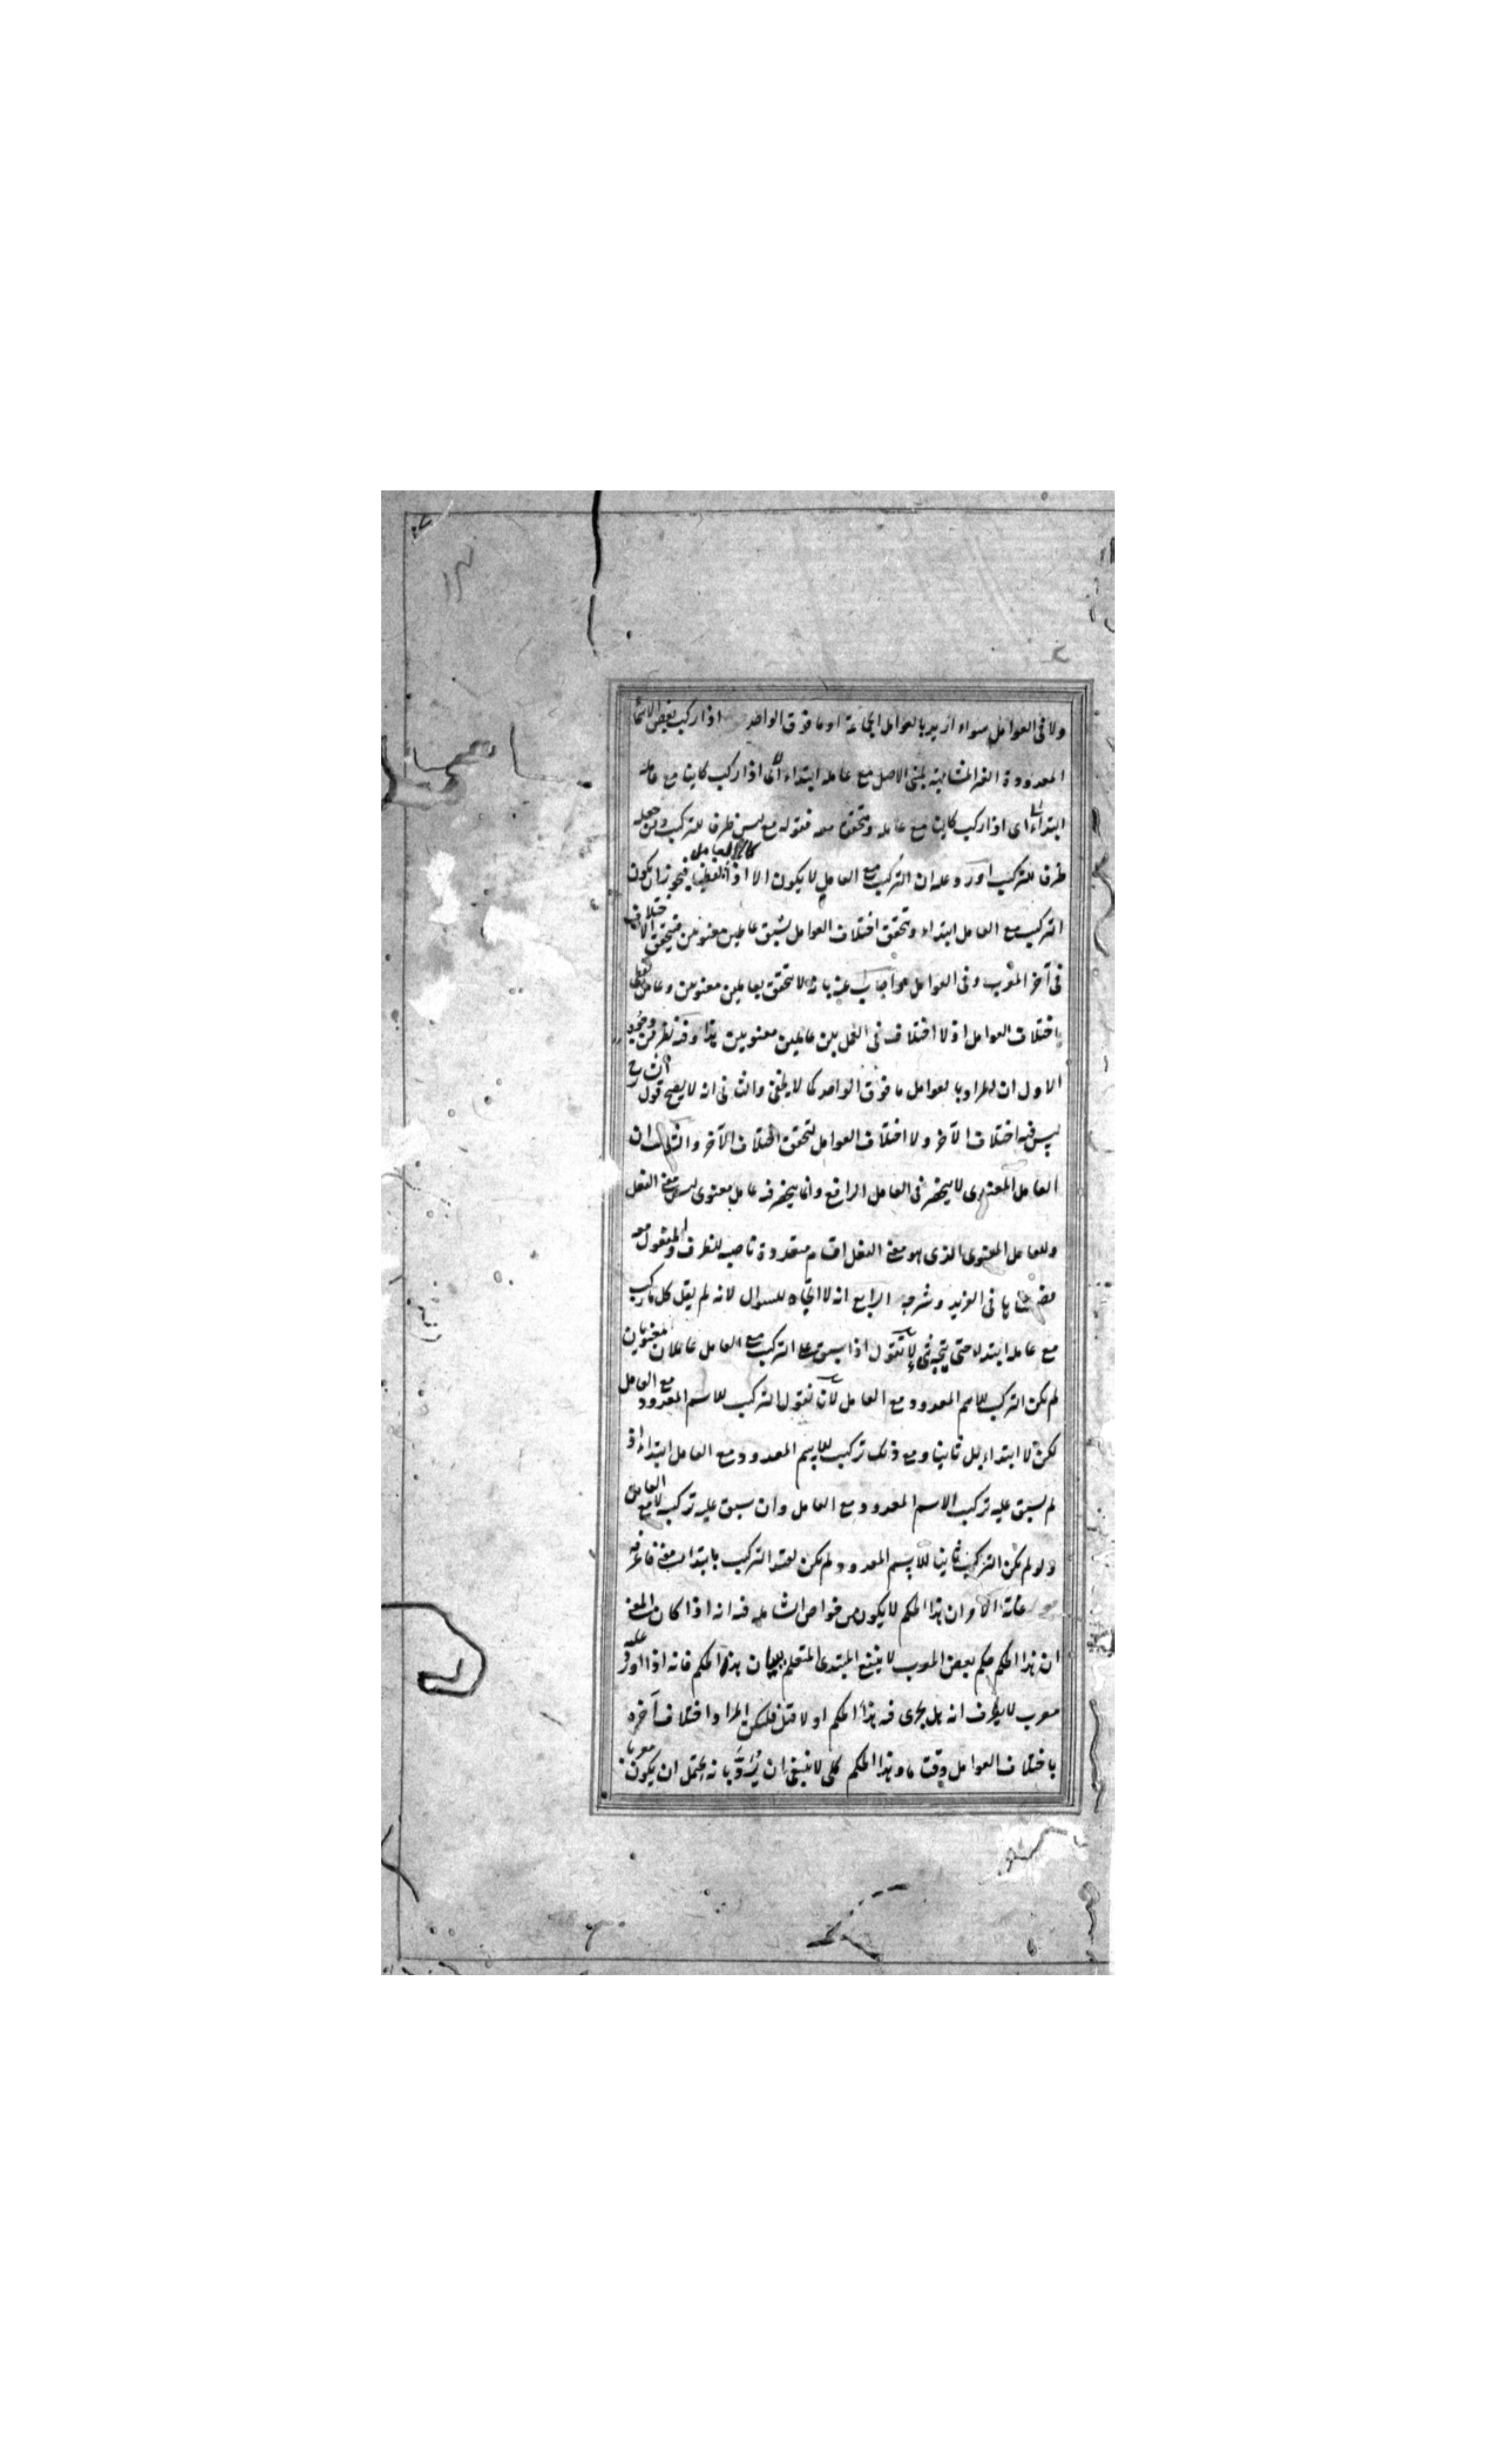 ولا فى العوامل سواء اريد بالعوامل الجماعة او ما فوق الواحد اذا ركب بعض الاسماء
المعدودة الغير المشابهة لمبنى الاصل مع عامله ابتداء اى اذا ركب كاينا مع عامله
ابتداء اى اذا ركب كاينا مع عامله ومتحقق معه فقوله مع ليس ظرف للتركيب ومن جعله
ظرف للتركيب اورد عليه ان التركيب مع العامل لا يكون الا اذا كان العامل لفظيا فيجوز ان يكون
التركيب مع العامل ابتداء وتحقق اختلاف العوامل بسبق عاملين معنويين فيتحقق الاختلاف
فى آخر المعرب وفى العوامل واجاب عنه بانه لا يتحقق بعاملين معنويين وعامل لفظى
باختلاف العوامل اذ لا اختلاف فى العمل بين عاملين معنويين هذا وفيه نظر من وجوه
الاول ان المراد بالعوامل ما فوق الواحد كما لا يخفى والثانى انه لا يصح قول الشارح
ليس فيه اختلاف الآخر ولا اختلاف العوامل لتحقق اختلاف الآخر والثالث ان
العامل المعنوى لا ينحصر فى العامل الرافع وانما ينحصر فيه عامل معنوى ليس معنى الفعل
وللعامل المعنوى الذى هو معنى الفعل اقسام متعددة ناصبه للظرف والمفعول معه
فى المزيد وشرحه الرابع انه لا اتجاه للسوال لانه لم يقل كل ما ركب
مع عامله ابتداء حتى يتجه شئ لا تقول اذا سبق على التركيب مع العامل عاملان معنويان
لم يكن التركيب للاسم المعدود مع العامل لانا نقول التركيب للاسم المعدود مع العامل
لكن لا ابتداء بل ثانيا ومع ذلك تركيب للاسم المعدود مع العامل ابتداء اذ
لم يسبق عليه تركيب الاسم المعدود مع العامل وان سبق عليه تركيب لا مع العامل
ولو لم يكن التركيب ثانيا للاسم المعدود ولم يكن لقيد التركيب بابتداء معنى فاعرفه
ان هذا الحكم لا يكون من خواص الشاملة فيه انه اذا كان المعنى
ان هذا الحكم حكم بعض المعرب لا ينفع المبتدى المتعلم بيان هذا الحكم فانه اذا اورد عليه
معرب لا يعرف انه هل يجرى فيه هذا الحكم او لا قيل فليكن المراد اختلاف آخره
باختلاف العوامل وقت ما وهذا الحكم كلى لا ينبغى ان يزاد بانه يحتمل ان يكون معربا